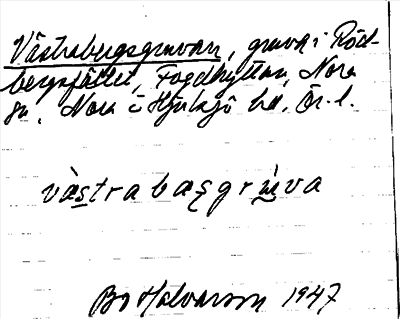 Västrabergsgruvan, gruva i Röd-
bergsfältet, Fogdhyttan, Nora
sn, Nora o Hjulsjö hd, Ör. l.
vàstrabaςgrùva
Bo Halvarson 1947